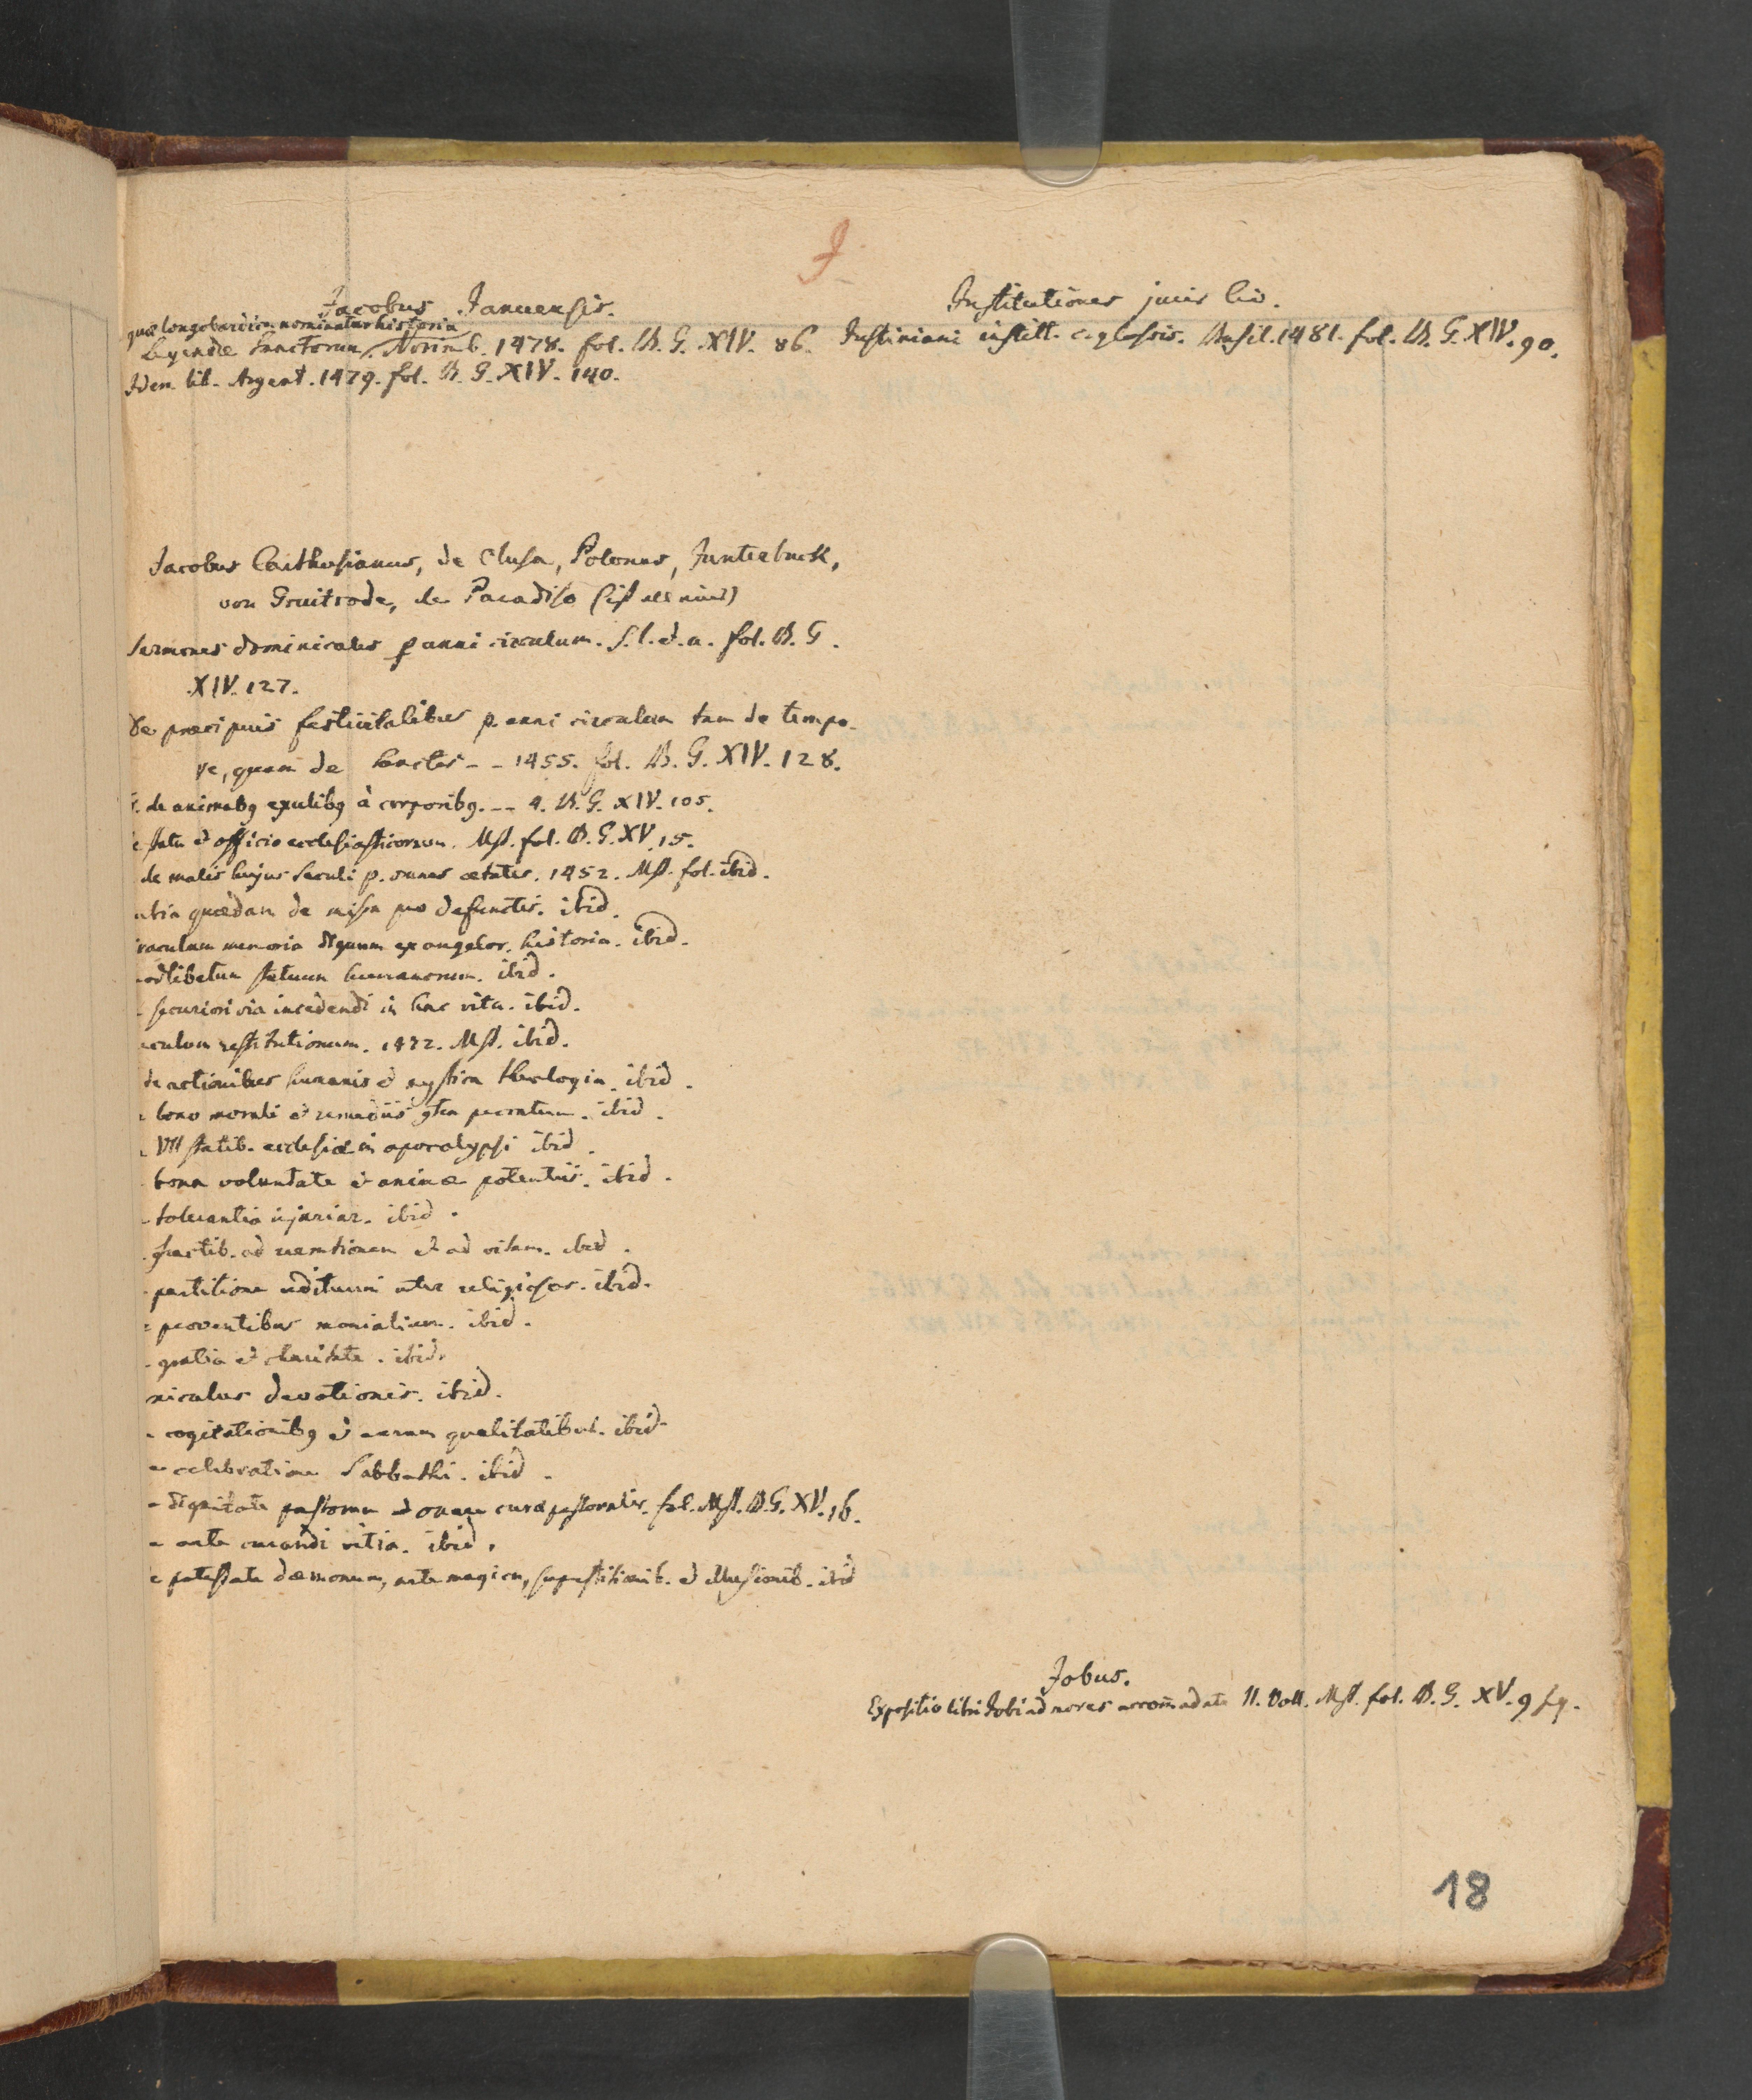 J
Jacobus Januensis.
quæ longobardica nominatur historia
Legendæ Sanctorum, Norimb. 1478. fol. B. G. XIV. 86.
Idem lib. Argent. 1479. fol. B. G. XIV. 140.
Jacobus Carthusianus, de Clusa, Polonus, Junterbuck,
von Gruitrode, de Paradiso (ist all eins)
Sermones dominicales p anni circulum. S. l. et. a. fol. B. G.
XIV. 127.
De præcipuis festivitatibus p. anni circulum tam de tempo-
re, quam de Sanctis - - 1455. fol. B. G. XIV. 128.
de animabq exutibq à corporibq. -- 4. B. G. XIV. 105.
statu et officio ecclesiasticorum. Mst. fol. B. G. XV. 15.
de malis hujus Seculi p. omnes ætates. 1452. Mst. fol. ibid.
ubia quædam de missa pro defunctis. ibid.
raculum memoria dignum ex angelor. historia. ibid.
odlibetum statuum humanorum. ibid.
securiori via incedendi in hac vita. ibid.
culum restitutionum. 1472. Mst. ibid.
de actionibus humanis et mystica theologia. ibid.
bono morali et remediis gtra peccatum. ibid.
VII statib. ecclesiæ in apocalypsi ibid.
bona voluntate et animæ potentiis. ibid.
tolerantia injuriar. ibid.
ad et ad vitam. ibid.
partitione redituum inter religiosos. ibid.
proventibus monialium. ibid.
gratia et charitate. ibid.
niculus devotionis. ibid.
cogitationibq et earum qualitatibus. ibid.
celebratione Sabbathi. ibid.
dignitate pastorum et onere curæ pastoralis. fol. Mst. B. G. XV. 16.
arte curandi vitia. ibid.
potestate dæmonum, arte magica, superstitionib. et illusionib. ibid
Institutiones juris civ.
Justiniani institt. c. glossis. Basil. 1481. fol. B. G. XIV. 90.
Jobus.
Expositio libri Jobi ad mores accom̄odata II. Voll. Mst. fol. B. G. XV. 9 sq.
18